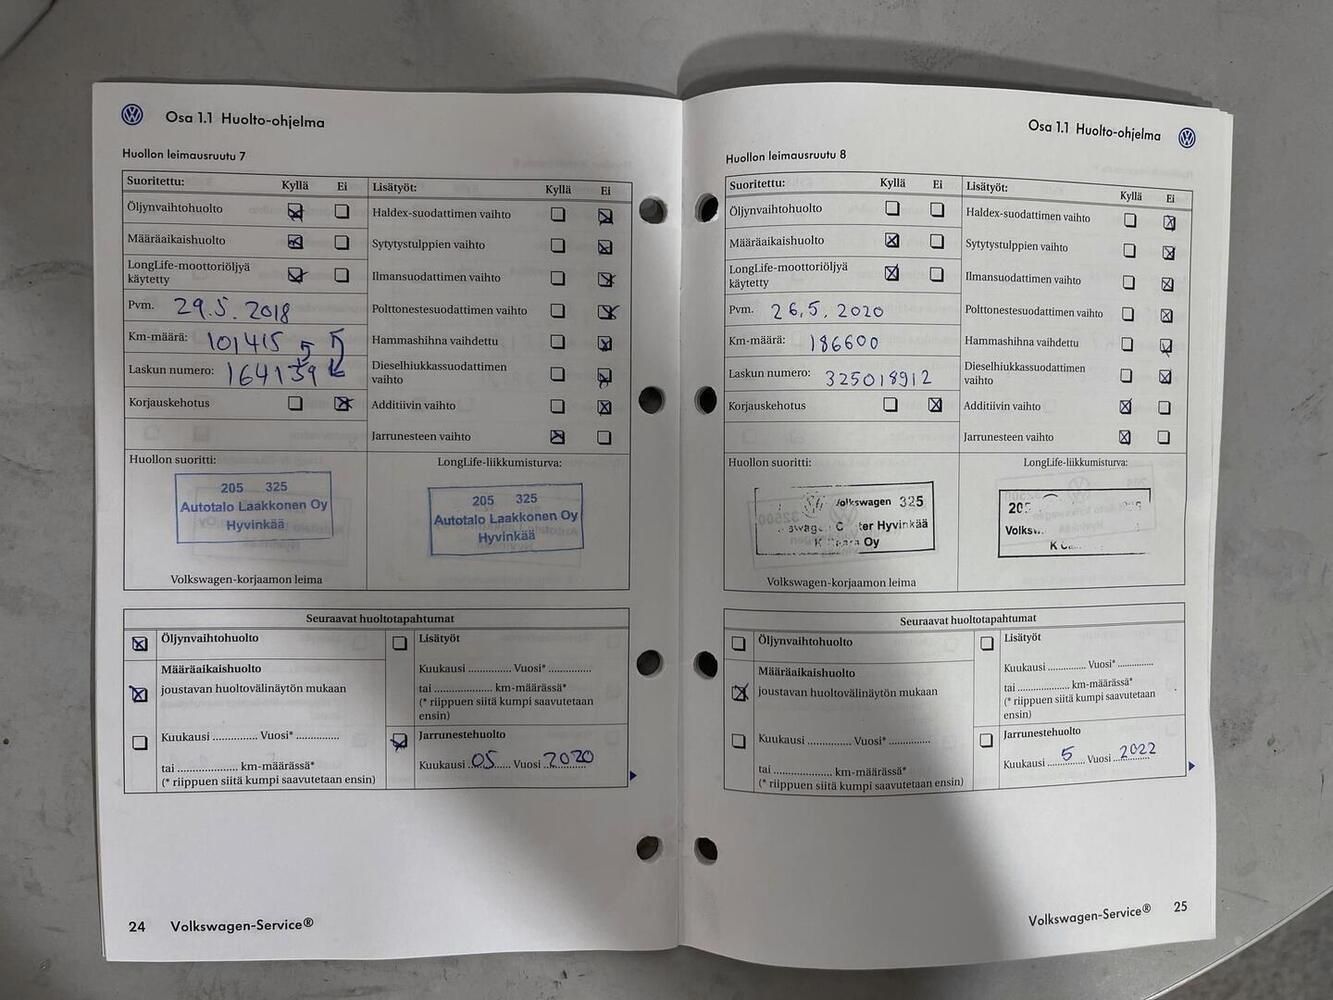 Osa 1.1 Huolto-ohjelma
Huollon leimausruutu 7
Suoritettu: Kyllä Ei
Öljynvaihtohuolto
Määräaikaishuolto
LongLife-moottoriöljyä
käytetty
Pvm. 29.5.2018
Km-määrä: 101415
Laskun numero: 164139
Korjauskehotus
Lisätyöt: Kyllä Ei
Haldex-suodattimen vaihto
Sytytystulppien vaihto
Ilmansuodattimen vaihto
Polttonestesuodattimen vaihto
Hammashihna vaihdettu
Dieselhiukkassuodattimen
vaihto
Additiivin vaihto
Jarrunesteen vaihto
Huollon suoritti:
205 325
Autotalo Laakkonen Oy
Hyvinkää
Volkswagen-korjaamon leima
LongLife-liikkumisturva:
205 325
Autotalo Laakkonen Oy
Hyvinkää
Seuraavat huoltotapahtumat
Öljynvaihtohuolto
Määräaikaishuolto
joustavan huoltovälinäytön mukaan
Kuukausi .............. Vuosi* ..............
tai .................... km-määrässä*
(* riippuen siitä kumpi saavutetaan ensin)
Lisätyöt
Kuukausi .............. Vuosi* ..............
tai .................... km-määrässä*
(* riippuen siitä kumpi saavutetaan
ensin)
Jarrunestehuolto
Kuukausi 05 Vuosi 2020
24 Volkswagen-Service®
Osa 1.1 Huolto-ohjelma
Huollon leimausruutu 8
Suoritettu: Kyllä Ei
Öljynvaihtohuolto
Määräaikaishuolto
LongLife-moottoriöljyä
käytetty
Pvm. 26.5.2020
Km-määrä: 186600
Laskun numero: 325018912
Korjauskehotus
Lisätyöt: Kyllä Ei
Haldex-suodattimen vaihto
Sytytystulppien vaihto
Ilmansuodattimen vaihto
Polttonestesuodattimen vaihto
Hammashihna vaihdettu
Dieselhiukkassuodattimen
vaihto
Additiivin vaihto
Jarrunesteen vaihto
Huollon suoritti:
olkswagen 325
Hyvinkää
Oy
Volkswagen-korjaamon leima
LongLife-liikkumisturva:
Volksw
Seuraavat huoltotapahtumat
Öljynvaihtohuolto
Määräaikaishuolto
joustavan huoltovälinäytön mukaan
Kuukausi .............. Vuosi* ..............
tai .................... km-määrässä*
(* riippuen siitä kumpi saavutetaan ensin)
Lisätyöt
Kuukausi .............. Vuosi* ..............
tai .................... km-määrässä*
(* riippuen siitä kumpi saavutetaan
ensin)
Jarrunestehuolto
Kuukausi 5 Vuosi 2022
Volkswagen-Service® 25